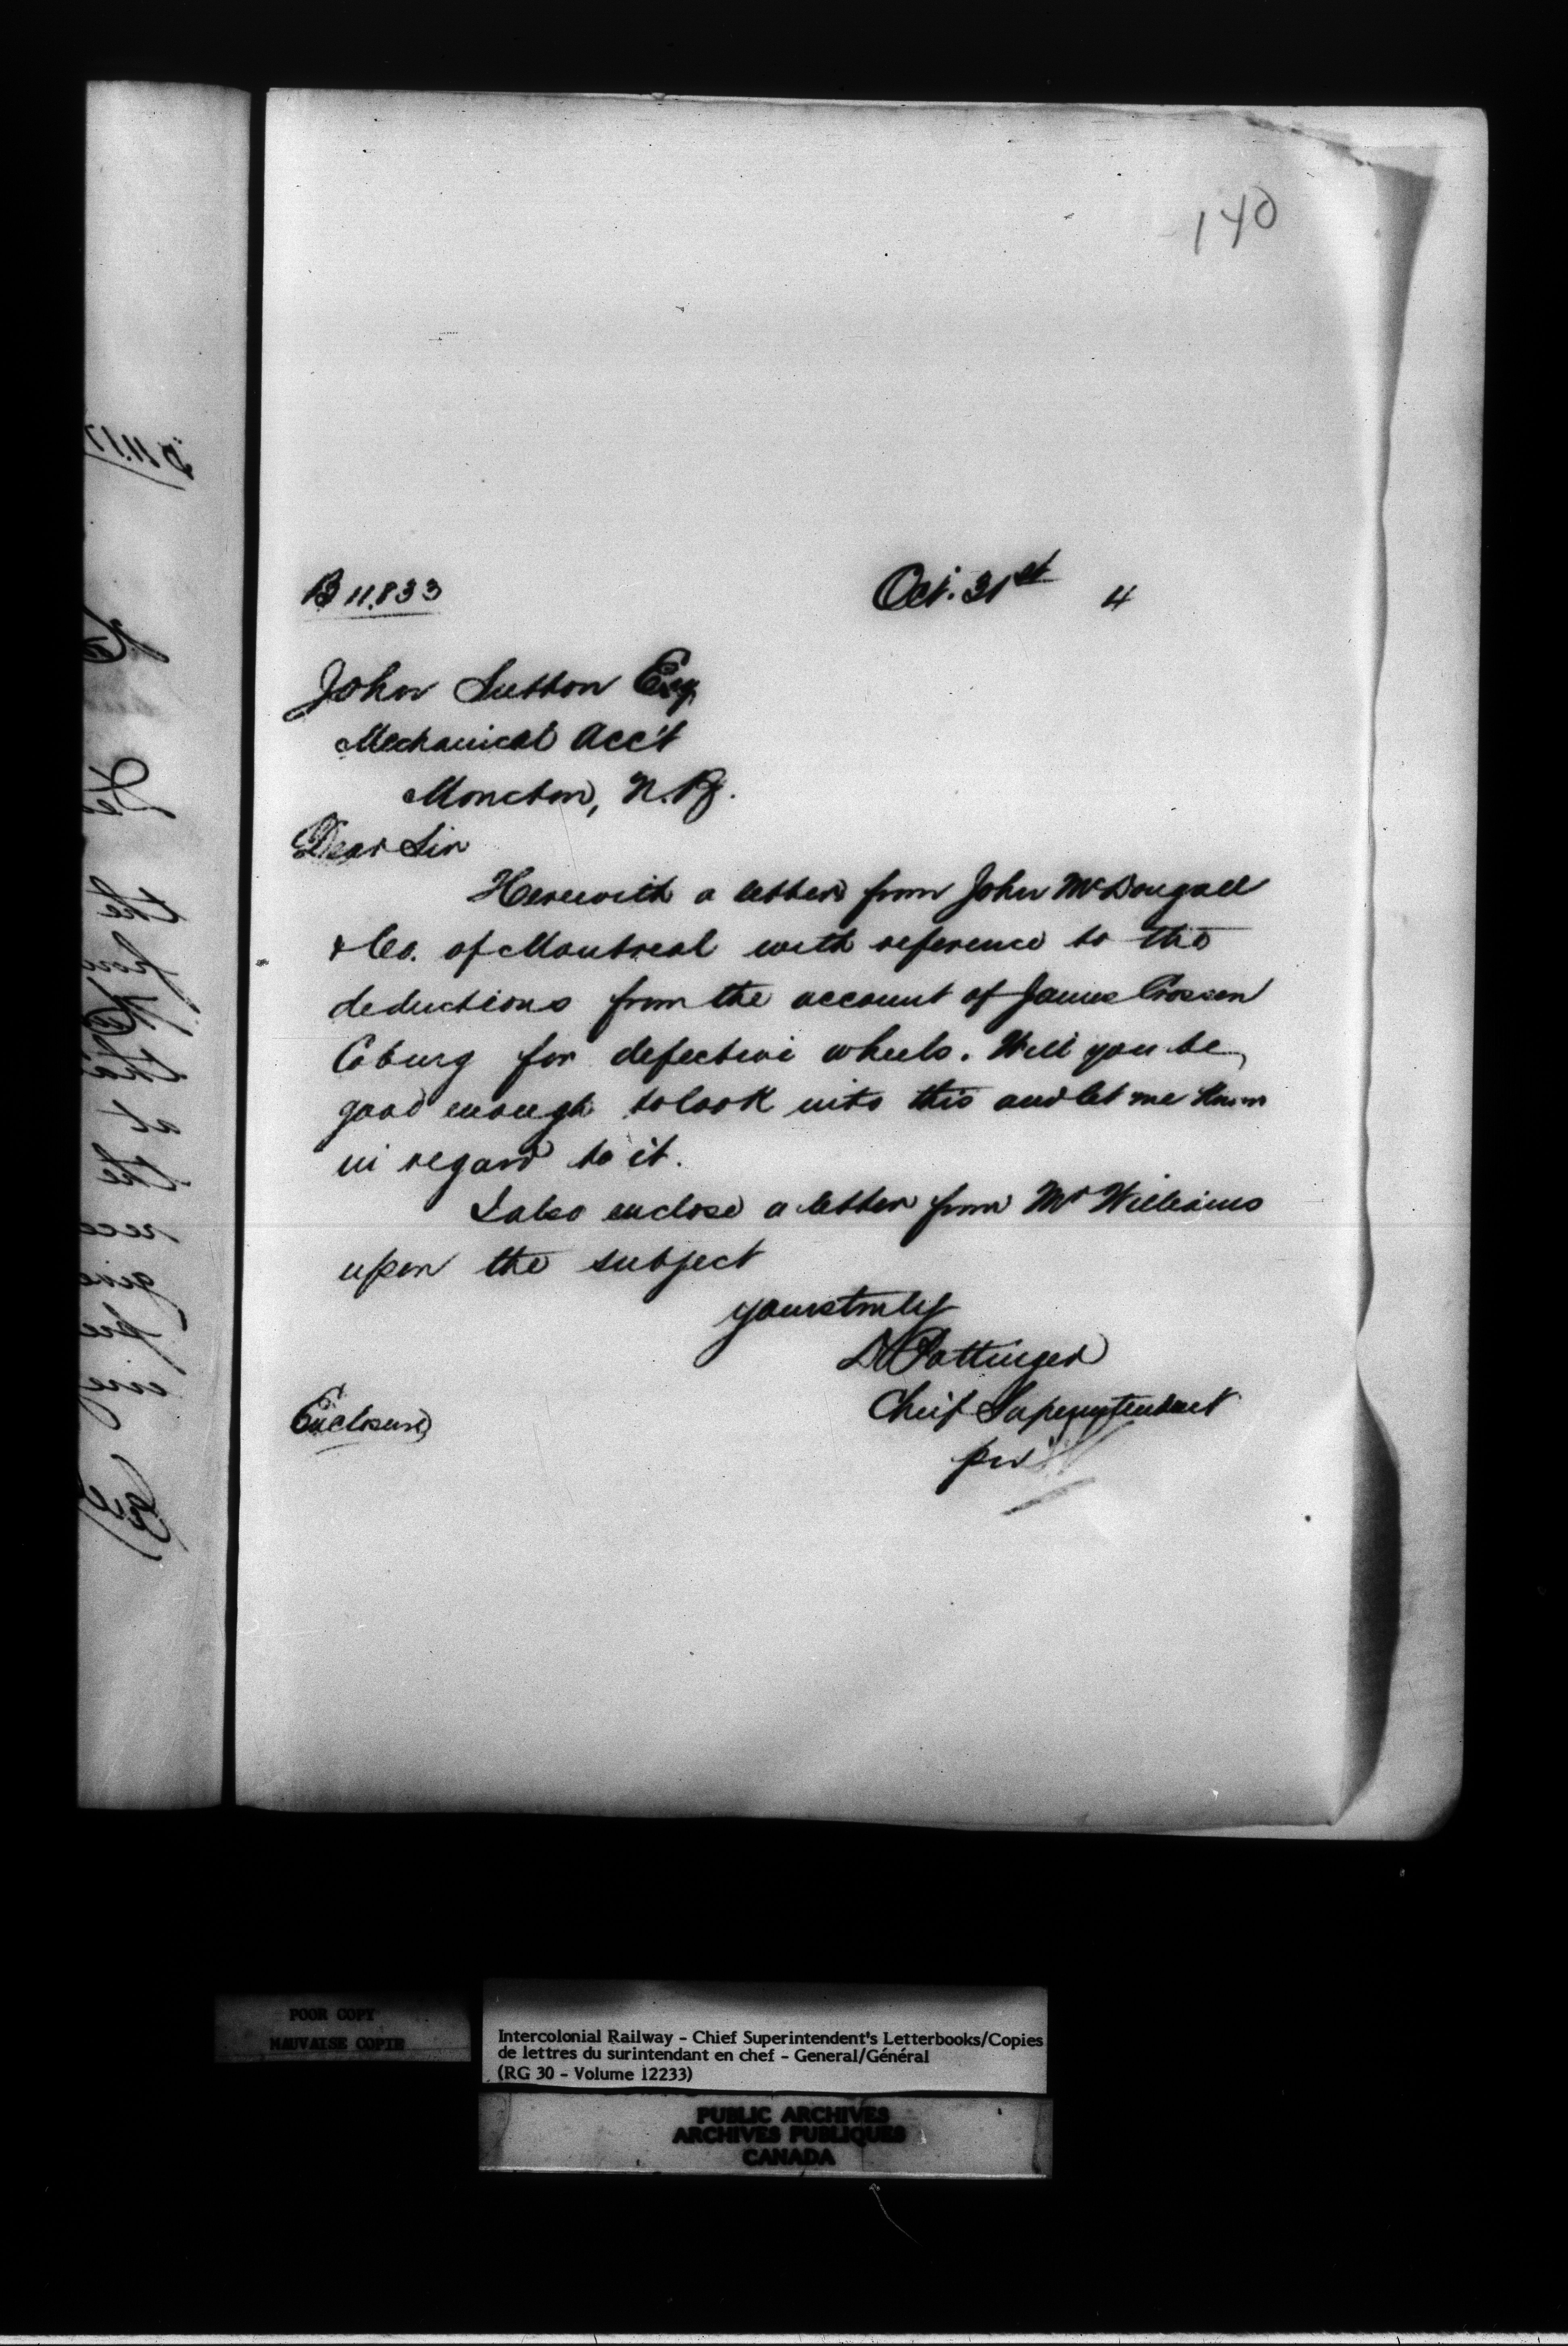 140
B 11,833
Oct. 31st 4
John Sutton Esq
Mechanical Acc't
Moncton, N.B.
Dear Sir
Herewith a letter from John McDougall
& Co. of Montreal with reference to the
deductions from the account of James Crossen
Coburg for defective wheels. Will you be
good enough to look into this and let me know
in regard to it.
I also enclose a letter from Mr Williams
upon the subject
yours truly
D Pottinger
Chief Superintendent
per
Enclosure
POOR COPY
MAUVAISE COPIE
Intercolonial Railway - Chief Superintendent's Letterbooks/Copies
de lettres du surintendant en chef - General/Général
(RG 30 - Volume 12233)
PUBLIC ARCHIVES
ARCHIVES PUBLIQUES
CANADA